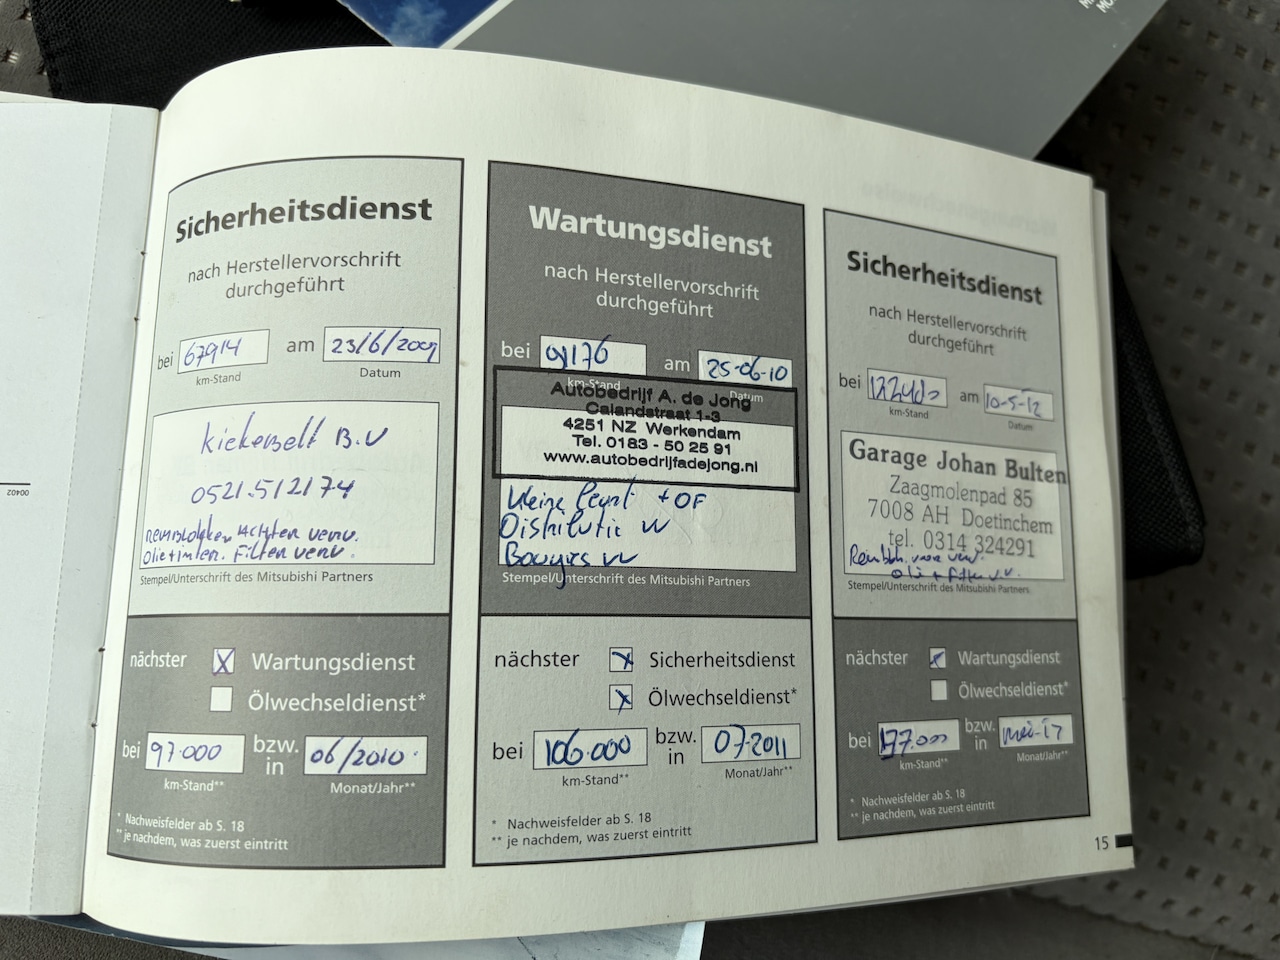 Sicherheitsdienst
nach Herstellervorschrift
durchgeführt
bei 67914 am 23/6/2009
km-Stand Datum
B.V
0521.512174
achter verv.
Olie+inter. Filter verv.
Stempel/Unterschrift des Mitsubishi Partners
nächster X Wartungsdienst
Ölwechseldienst*
bei 97.000 bzw. in 06/2010
km-Stand** Monat/Jahr**
* Nachweisfelder ab S. 18
** je nachdem, was zuerst eintritt
Wartungsdienst
nach Herstellervorschrift
durchgeführt
bei 91176 am 25-06-10
km-Stand Datum
Autobedrijf A. de Jong
Calandstraat 1-3
4251 NZ Werkendam
Tel. 0183 - 50 25 91
www.autobedrijfadejong.nl
Kleine + OF
Distributie
Bougies
Stempel/Unterschrift des Mitsubishi Partners
nächster X Sicherheitsdienst
X Ölwechseldienst*
bei 106.000 bzw. in 07-2011
km-Stand** Monat/Jahr**
* Nachweisfelder ab S. 18
** je nachdem, was zuerst eintritt
Sicherheitsdienst
nach Herstellervorschrift
durchgeführt
bei am 10-5-12
km-Stand Datum
Garage Johan Bulten
Zaagmolenpad 85
7008 AH Doetinchem
tel. 0314 324291
verv.
olie + filter v.v.
Stempel/Unterschrift des Mitsubishi Partners
nächster Wartungsdienst
Ölwechseldienst*
bei bzw. in
km-Stand** Monat/Jahr**
* Nachweisfelder ab S. 18
** je nachdem, was zuerst eintritt
15
00402